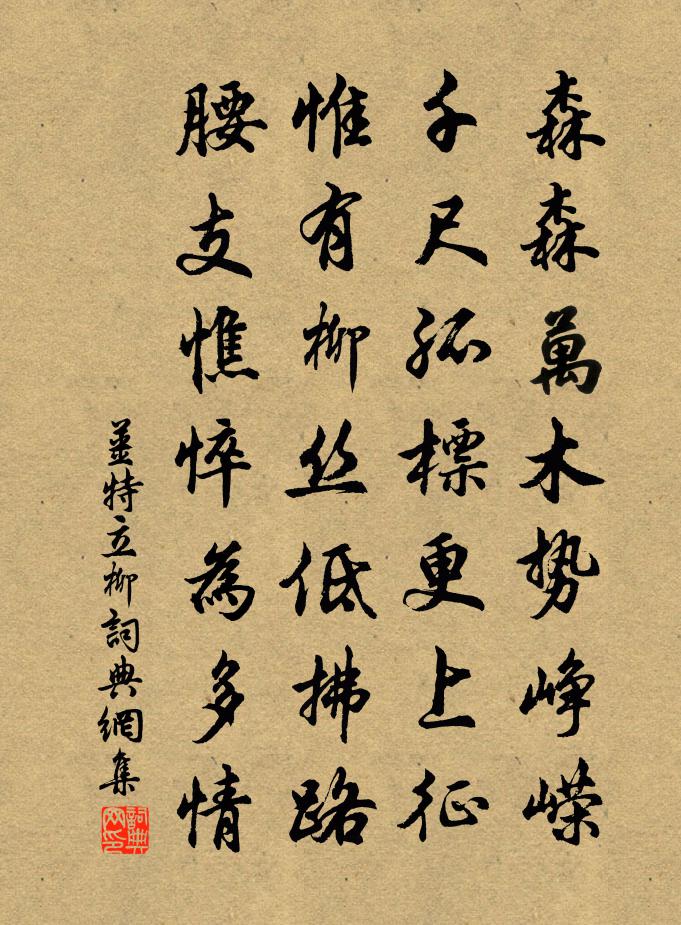 森森萬木势峥嵘
千尺孤標更上征
惟有柳丝低拂路
腰支憔悴為多情
姜特立柳詞典網集
詞典网印